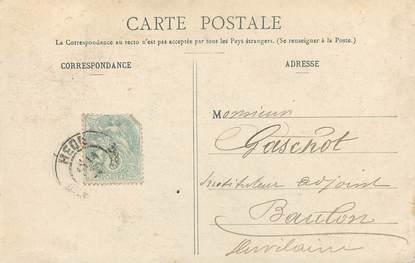 CARTE POSTALE
La Correspondance au recto n'est pas acceptée par tous les Pays étrangers. (Se renseigner à la Poste.)
CORRESPONDANCE
ADRESSE
Monsieur
Gaschot
Instituteur adjoint
Baulon
HEDÉ